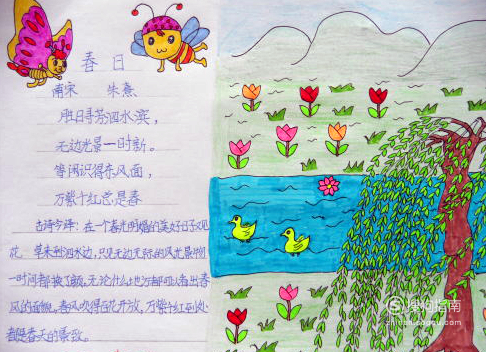 春日
南宋 朱熹
胜日寻芳泗水滨,
无边光景一时新。
等闲识得东风面,
万紫千红总是春
古诗今译:在一个春光明媚的美好日子观
花 草来到泗水边,只见无边无际的风光景物
一时间都换了新颜。无论什么地方都可以看出春
风的面貌。春风吹得百花开放,万紫千红到处
都是春天的景致。
搜狗指南
zhinan.sogou.com